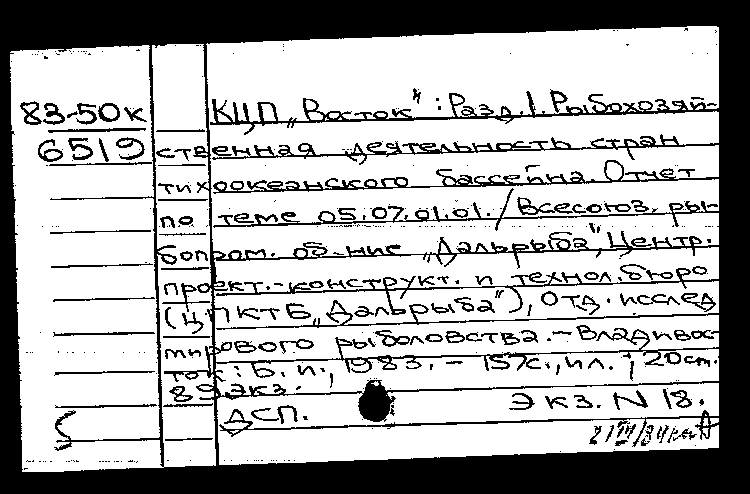 83-50к
6519
КЦП „Восток“: Разд. 1. Рыбохозяй-
ственная деятельность стран
тихоокеанского бассейна. Отчет
по теме 05.07.01.01. / Всесоюз. ры-
бопром. об-ние „Дальрыба“, Центр.
проект.-конструкт. и технол. бюро
(ЦПКТБ „Дальрыба“), Отд. исслед
мирового рыболовства. - Владивос-
ток: Б. и., 1983. - 157с., ил.; 20 см.
89 экз.
ДСП. Экз. N 18.